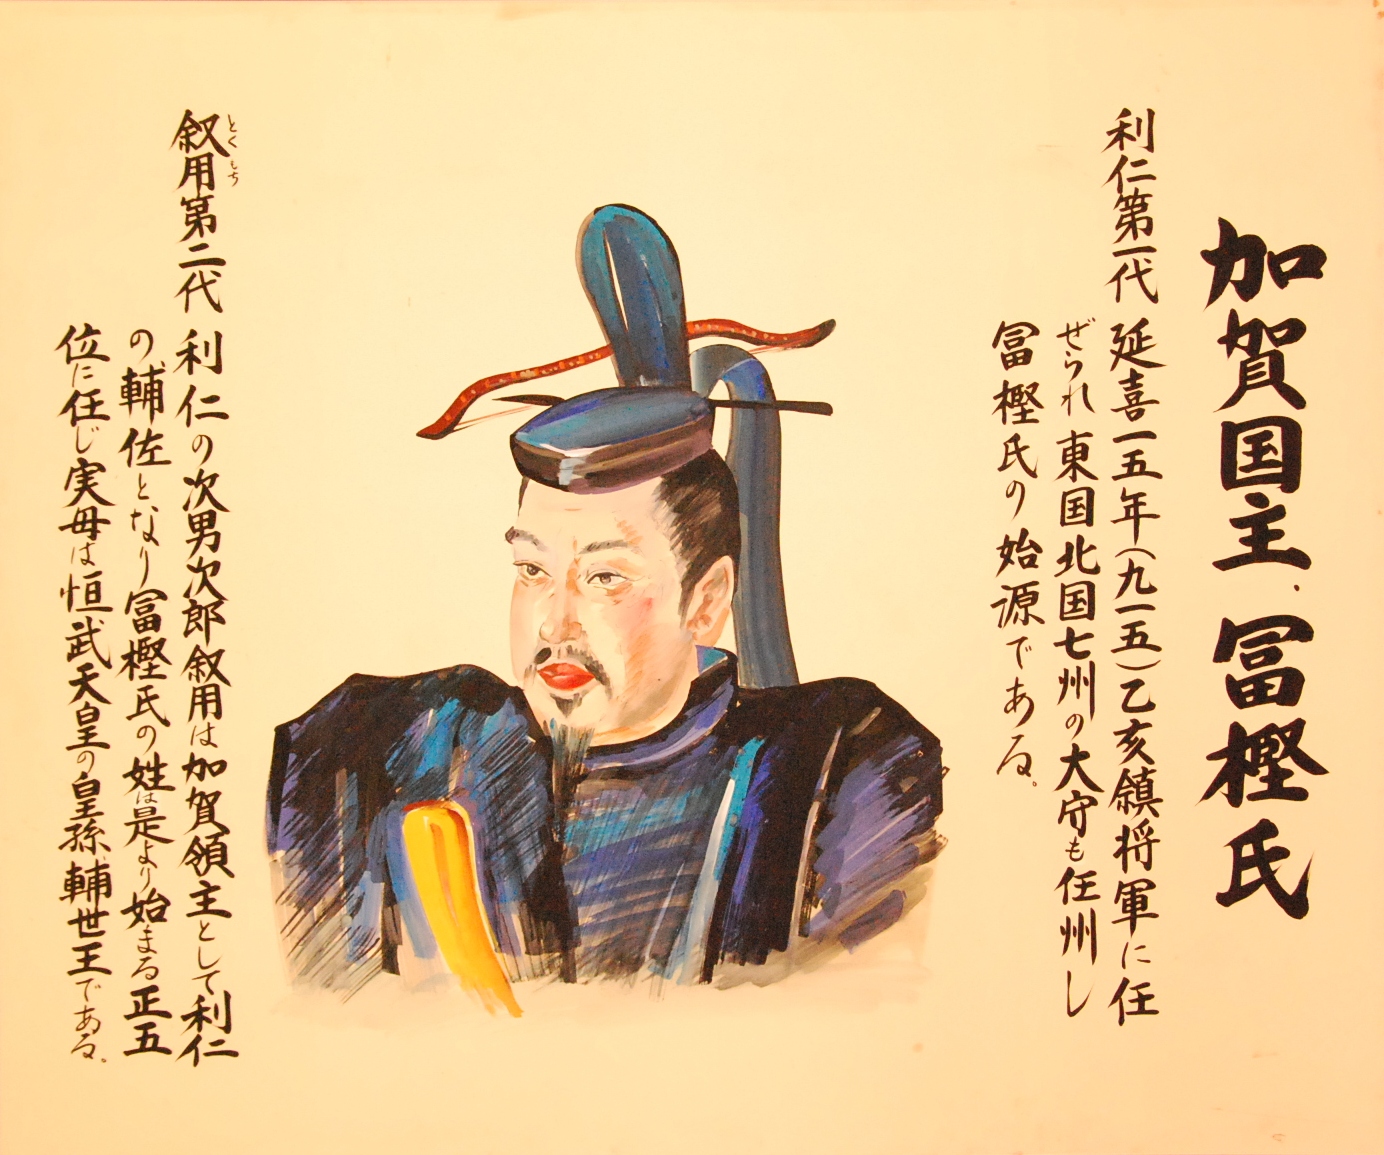 加賀国主・冨樫氏
利仁第一代 延喜一五年(九一五)乙亥鎮将軍に任
ぜられ東国北国七州の大守も任州し
冨樫氏の始源である。
とくもち
叙用第二代 利仁の次男次郎叙用は加賀領主として利仁
の輔佐となり冨樫氏の姓は是より始まる正五
位に任じ実母は恒武天皇の皇孫輔世王である。